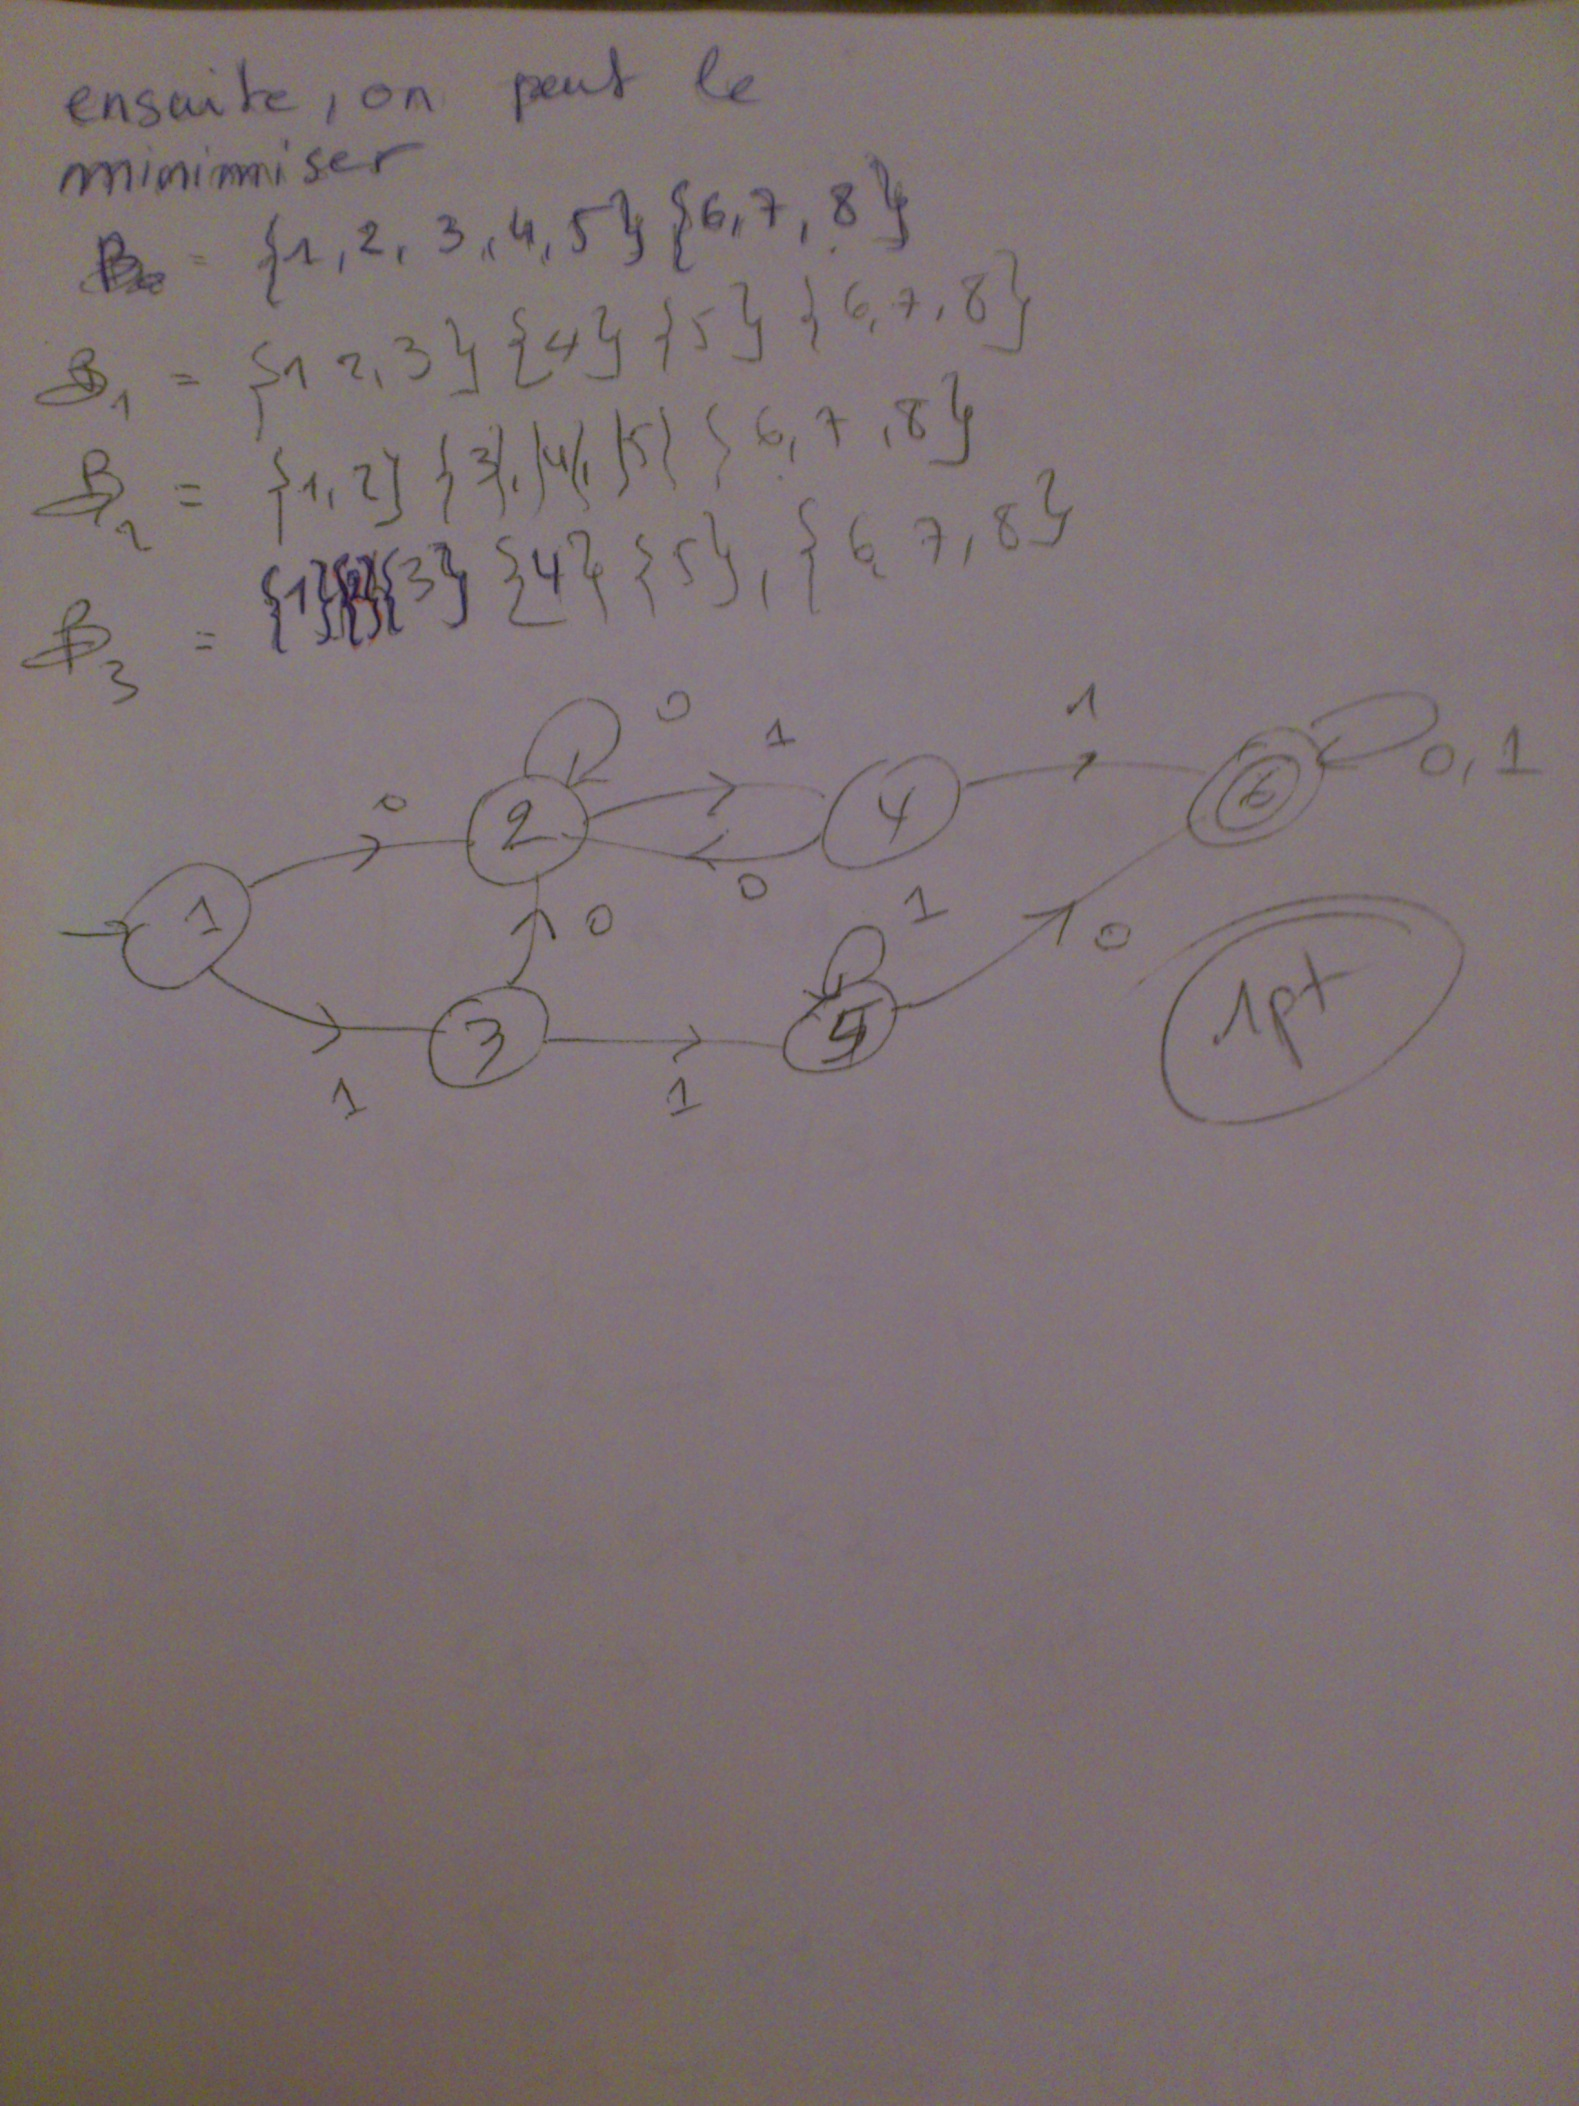 ensuite, on peut le
minimiser
B0 = {1, 2, 3, 4, 5} {6, 7, 8}
B1 = {1 2, 3} {4} {5} {6, 7, 8}
B2 = {1, 2} {3}, {4}, {5} {6, 7, 8}
B3 = {1}{2}{3} {4} {5}, {6 7, 8}
0 1 1
0 2 4 6 0, 1
1 0 0 1
0
3 5 1pt
1 1